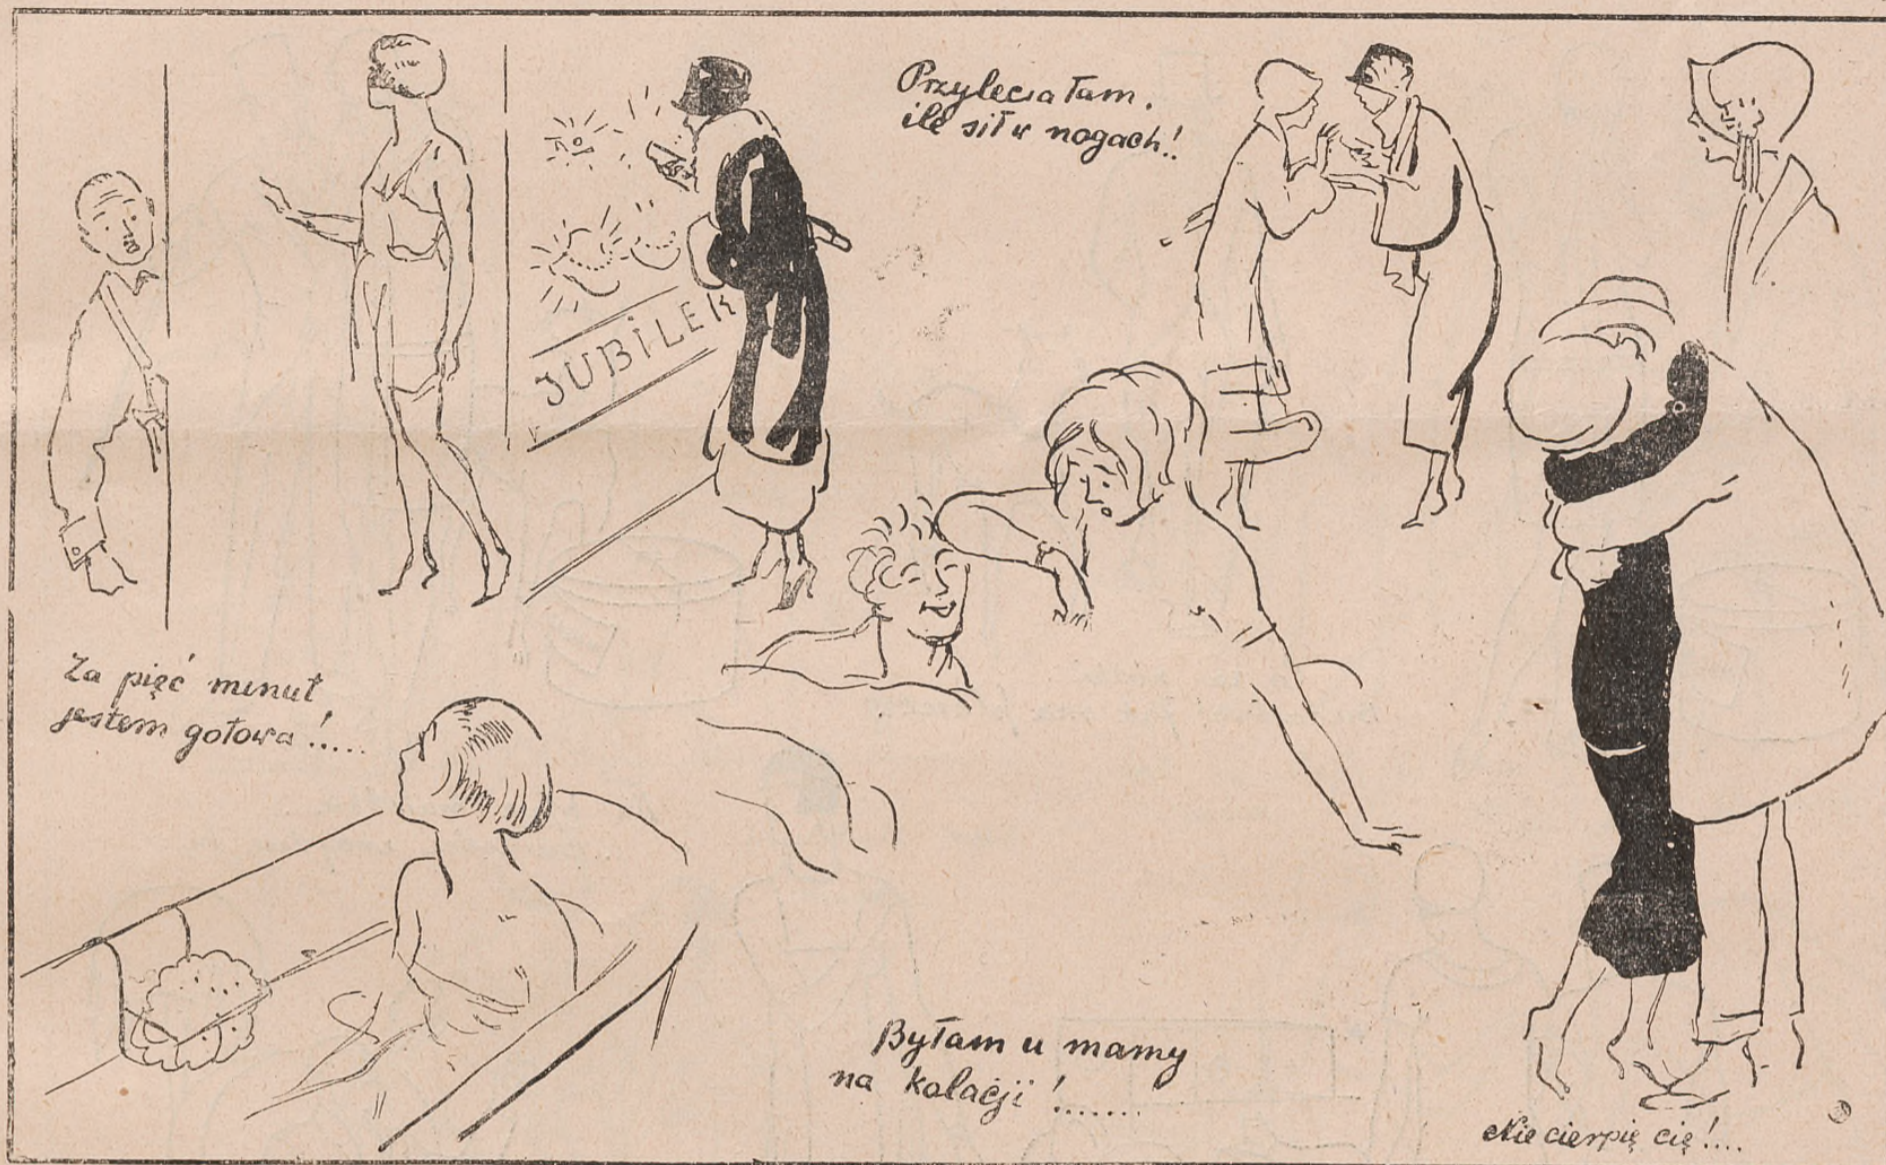 Przyleciałam,
ile sił w nogach!
JUBILER
Za pięć minut
jestem gotowa!.....
Byłam u mamy
na kolacji!.......
Nie cierpię cię!....